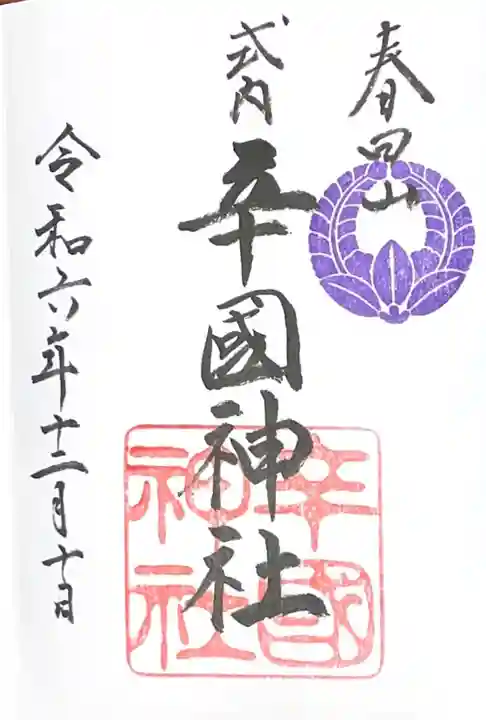 春日山
式内
辛國神社
辛國神社
令和六年十二月十日